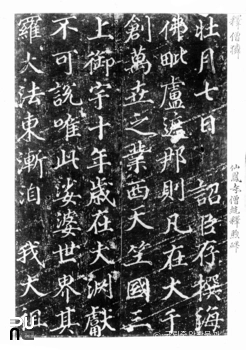 釋僧麟
仙鳳寺僧統釋煦碑
壯月七日　詔臣存撰海
佛毗盧遮那則凡在大千
創萬世之業西天竺國三
上御宇十年歲在大淵獻
不可說唯此娑婆世界其
羅大法東漸洎　我大祖